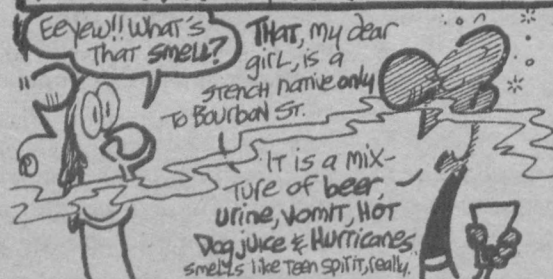 Eeyew!! What's
That smell?
THAT, my dear
girl, is a
stench native only
to Bourbon St.
It is a mix-
ture of beer,
urine, vomit, Hot
Dog juice & Hurricanes.
smells like Teen Spirit, really.